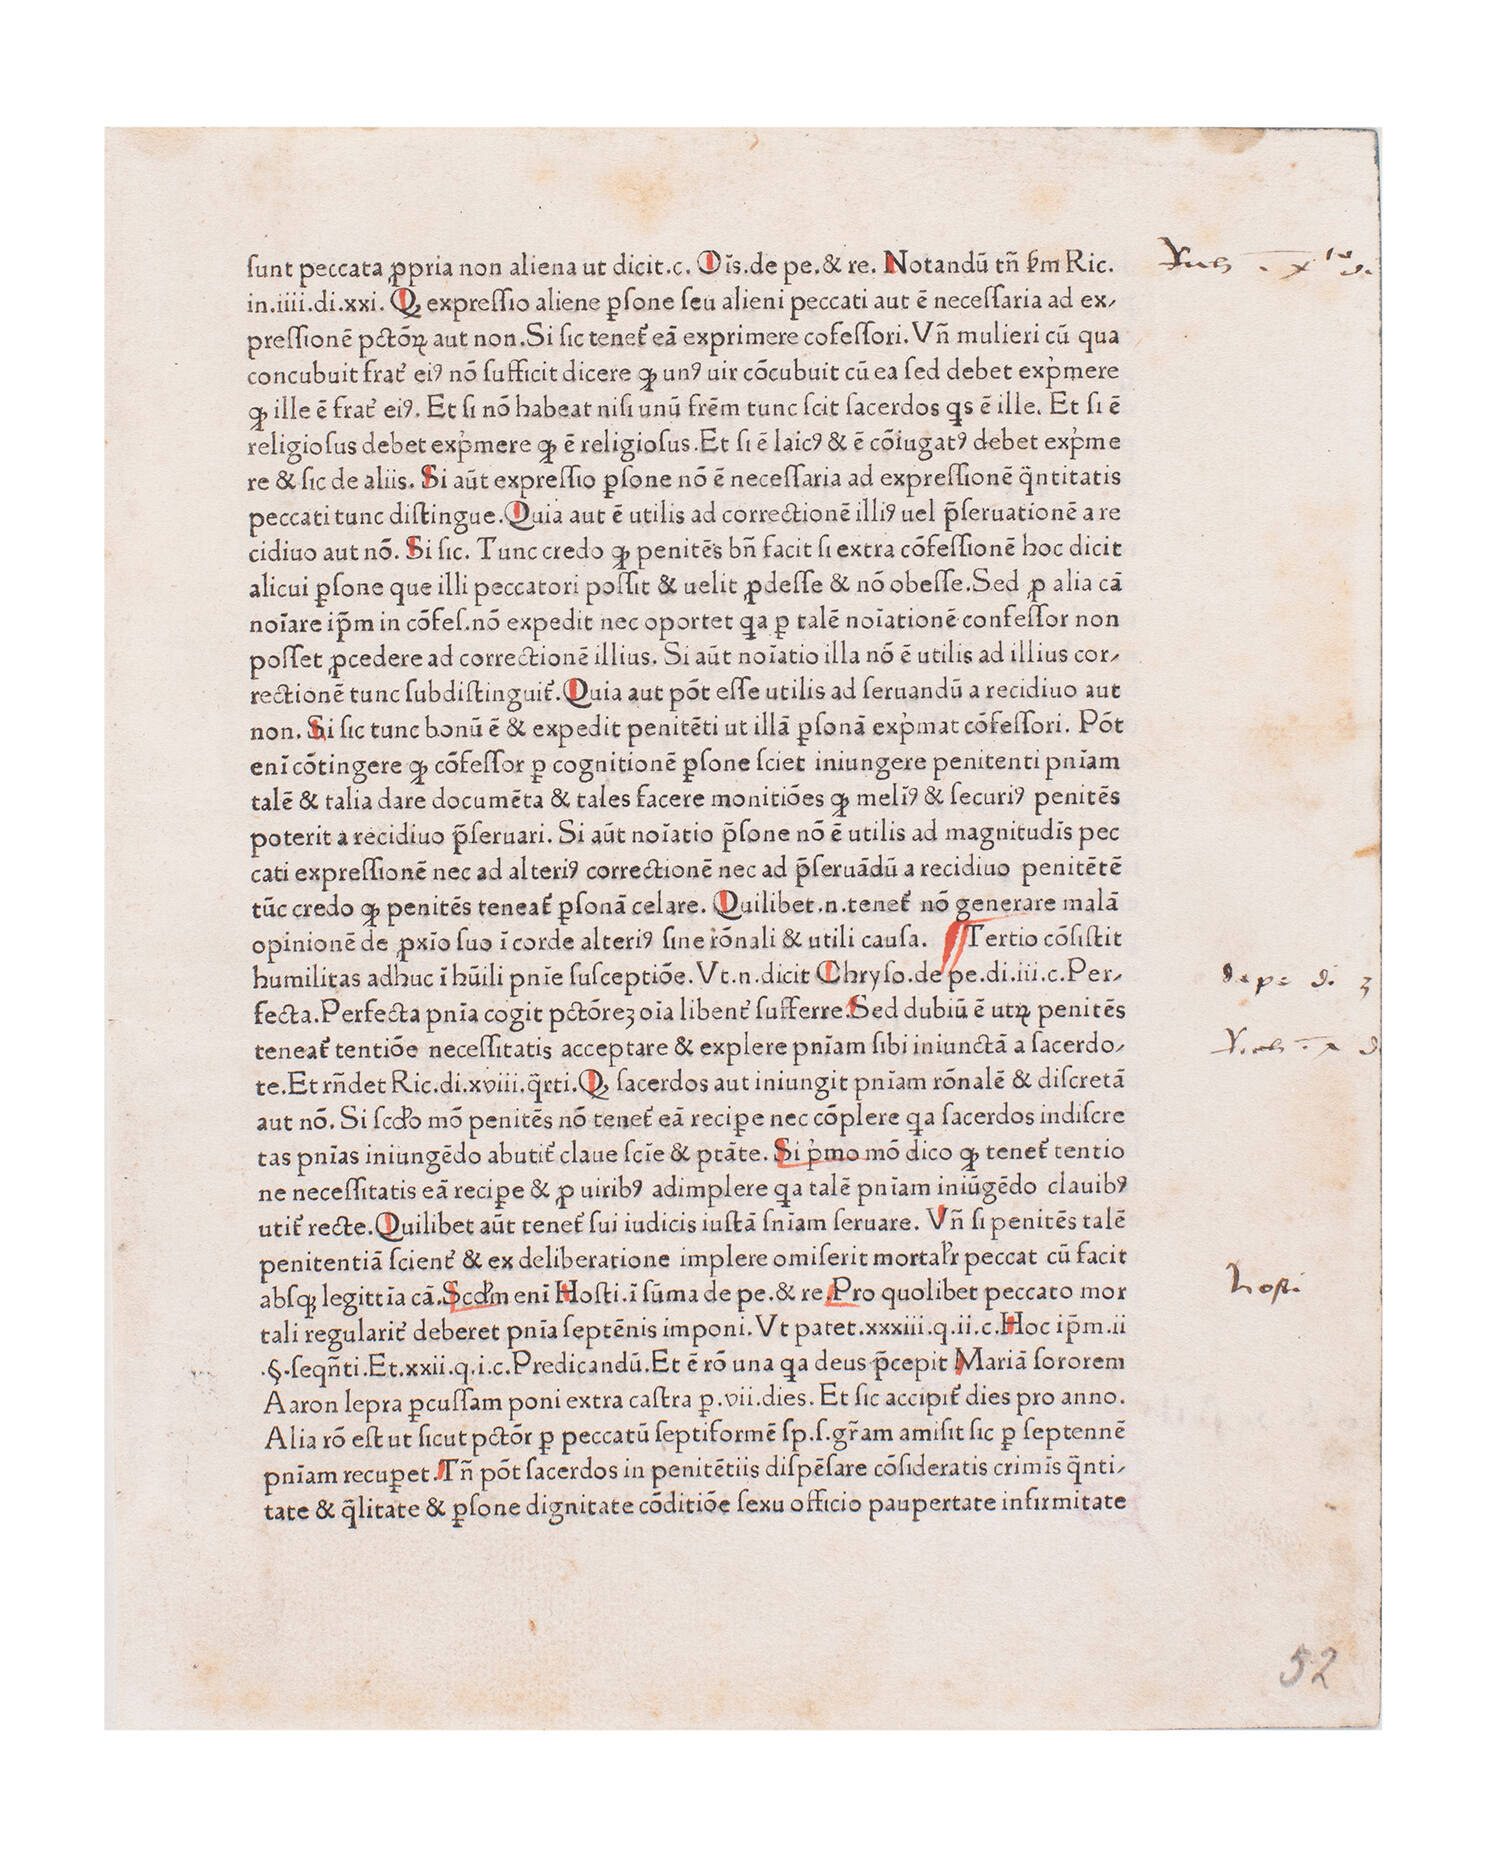 ſunt peccata ꝓpria non aliena ut dicit.c. Oīs.de pe.& re. Notandū tñ ẜm Ric.
in.iiii.di.xxi. Q̵ expreſſio aliene ꝑſone ſeu alieni peccati aut ē neceſſaria ad ex⸗
preſſionē pctōꝝ aut non.Si ſic teneť eā exprimere cofeſſori. Vñ mulieri cū qua
concubuit frať eiꝰ nō ſufficit dicere ꝙ unꝰ uir cōcubuit cū ea ſed debet exp̍mere
ꝙ ille ē frať eiꝰ. Et ſi nō habeat niſi unū frēm tunc ſcit ſacerdos qͥs ē ille. Et ſi ē
religioſus debet exp̍mere ꝙ ē religioſus.Et ſi ē laicꝰ & ē cōiugatꝰ debet exp̍me
re & ſic de aliis. Si aūt expreſſio ꝑſone nō ē neceſſaria ad expreſſionē q̄ntitatis
peccati tunc diſtingue.Quia aut ē utilis ad correctionē illiꝰ uel p̄ſeruationē a re
cidiuo aut nō. Si ſic. Tunc credo ꝙ penitēs bñ facit ſi extra cōfeſſionē hoc dicit
alicui ꝑſone que illi peccatori poſſit & uelit ꝓdeſſe & nō obeſſe.Sed ꝓ alia cā
noīare ip̄m in cōfeſ.nō expedit nec oportet qa ꝑ talē noīationē confeſſor non
poſſet ꝓcedere ad correctionē illius. Si aūt noīatio illa nō ē utilis ad illius cor⸗
rectionē tunc ſubdiſtinguiť.Quia aut pōt eſſe utilis ad ſeruandū a recidiuo aut
non. Si ſic tunc bonū ē & expedit penitēti ut illā ꝑſonā exp̍mat cōfeſſori. Pōt
enī cōtingere ꝙ cōfeſſor ꝑ cognitionē ꝑſone ſciet iniungere penitenti pnīam
talē & talia dare documēta & tales facere monitiōes ꝙ meliꝰ & ſecuriꝰ penitēs
poterit a recidiuo p̄ſeruari. Si aūt noīatio p̄ſone nō ē utilis ad magnitudīs pec
cati expreſſionē nec ad alteriꝰ correctionē nec ad p̄ſeruādū a recidiuo penitētē
tūc credo ꝙ penitēs teneať ꝑſonā celare. Quilibet.n.teneť nō generare malā
opinionē de ꝓxīo ſuo ī corde alteriꝰ ſine rōnali & utili cauſa. Tertio cōſiſtit
humilitas adhuc ī hūili pnīe ſuſceptiōe. Vt.n.dicit Chryſo.de pe.di.iii.c.Per⸗
fecta.Perfecta pnīa cogit pctōreꝫ oīa libenť ſufferre.Sed dubiū ē utꝝ penitēs
teneať tentiōe neceſſitatis acceptare & explere pnīam ſibi iniunctā a ſacerdo⸗
te.Et rñdet Ric.di.xviii.q̄rti.Q̵ ſacerdos aut iniungit pnīam rōnalē & diſcretā
aut nō. Si ſcd̵o mō penitēs nō teneť eā recipe nec cōplere qa ſacerdos indiſcre
tas pnīas iniungēdo abutiť claue ſcīe & ptāte. Si p̍mo mō dico ꝙ teneť tentio
ne neceſſitatis eā reciꝑe & ꝓ uiribꝰ adimplere qa talē pnīam iniūgēdo clauibꝰ
utiť recte.Quilibet aūt teneť ſui iudicis iuſtā ſnīam ſeruare. Vñ ſi penitēs talē
penitentiā ſcienť & ex deliberatione implere omiſerit mortalr̍ peccat cū facit
abſqꝫ legittīa cā.Scd̵m enī Hoſti.ī ſūma de pe.& re.Pro quolibet peccato mor
tali regulariť deberet pnīa ſeptēnis imponi.Vt patet.xxxiii.q.ii.c.Hoc ip̄m.ii
.§.ſeqñti.Et.xxii.q.i.c.Predicandū.Et ē rō una qa deus p̄cepit Mariā ſororem
Aaron lepra ꝑcuſſam poni extra caſtra ꝑ.vii.dies. Et ſic accipiť dies pro anno.
Alia rō eſt ut ſicut pctōr ꝑ peccatū ſeptiformē ſp.ſ.gr̄am amiſit ſic ꝑ ſeptennē
pnīam recuꝑet.Tñ pōt ſacerdos in penitētiis diſpēſare cōſideratis crimīs q̄nti⸗
tate & q̄litate & ꝑſone dignitate cōditiōe ſexu officio paupertate infirmitate
de pe di. 3
hoſti.
52